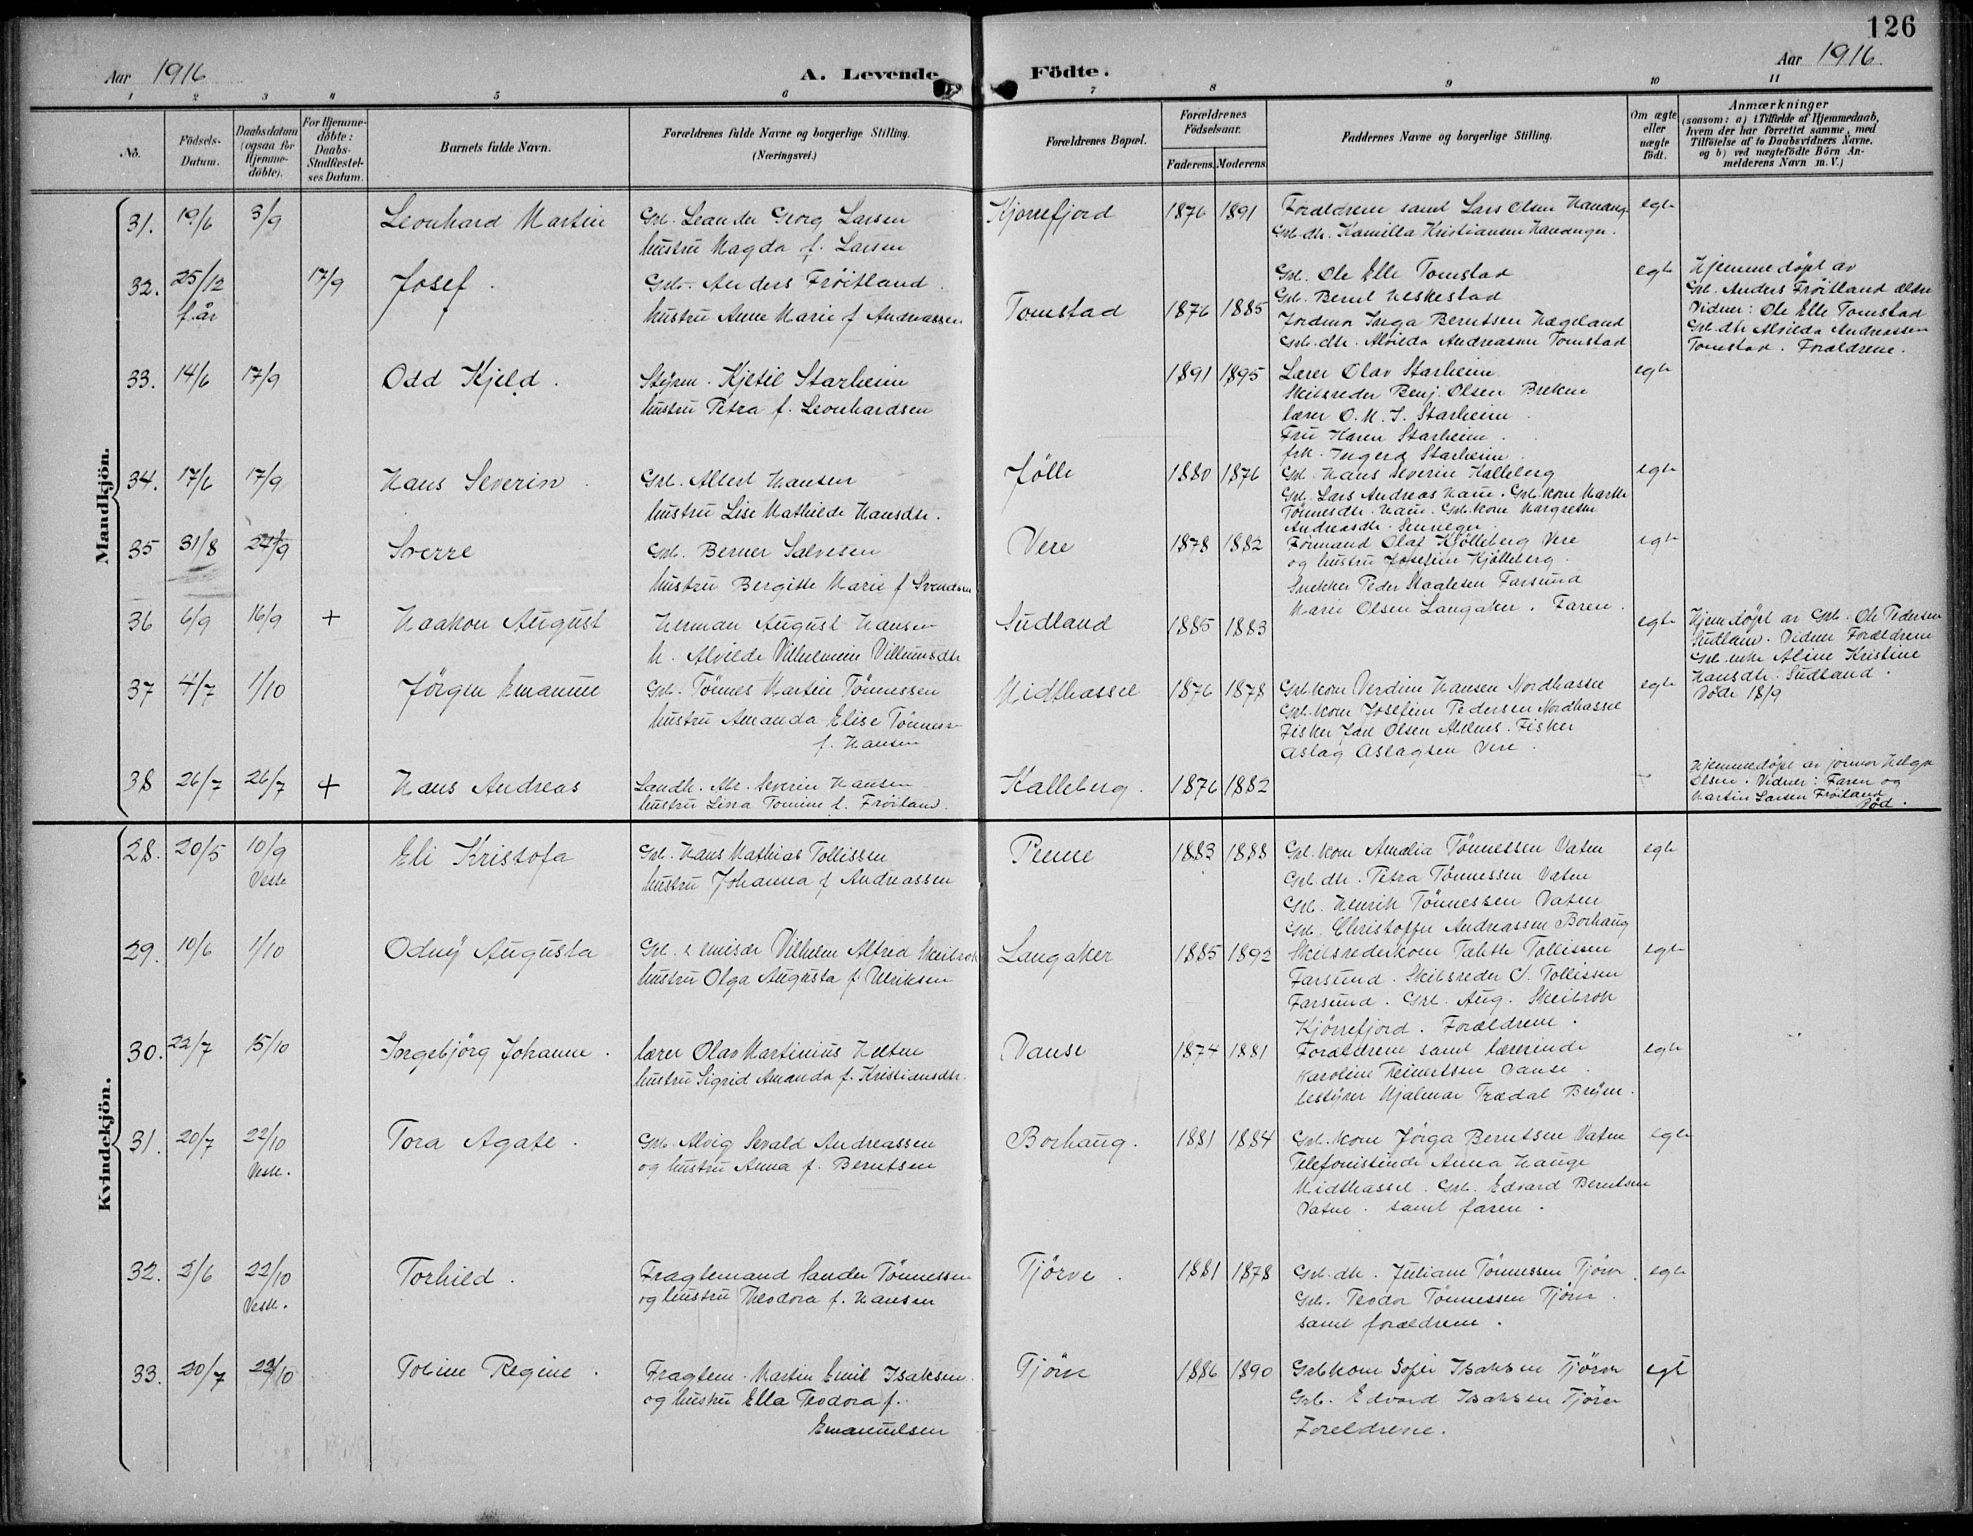 126
Aar 1916
A. Levende Födte.
Aar 1916.
1 2 3 4 5 6 7 8 9 10 11
No.
Födsels-Datum.
Daabsdatum (ogsaa for Hjemme-döbte).
For Hjemme-döbte: Daabs-Stadfæstel-ses Datum.
Barnets fulde Navn.
Forældrenes fulde Navne og borgerlige Stilling. (Næringsvei.)
Forældrenes Bopæl.
Forældrenes Födselsaar.
Faderens. Moderens.
Faddernes Navne og borgerlige Stilling.
Om ægte eller uægte födt.
Anmærkninger
(saasom: a) i Tilfælde af Hjemmedaab,
hvem der har forrettet samme, med
Tilföielse af to Daabsvidners Navne,
og b) ved uægtefödte Börn An-
melderens Navn m. V.)
Mandkjön.
31. 19/6 3/9 Leonhard Martin
Gbr. Leander Georg Larsen
hustru Magda f. Larsen
Kjørrefjord 1876 1891
Forældrene samt Lars Olsen
Gbr.dtr. Kamilla Kristiansen
egte
32. 25/12 f.år 17/9 Josef.
Gbr. Anders Frøitland.
hustru Anne Marie f Andreassen
Tomstad 1876 1885
Gbr. Ole Elle Tomstad
Gbr. Bernt
Jordmor Inga Berntsen Hægeland
Gbr.dtr. Alvilda Andreassen Tomstad
egte
Hjemmedøpt av
Gbr. Anders Frøitland ældre
Vidner: Ole Elle Tomstad
Gbr.dtr Alvilda Andreassen
Tomstad. Forældrene.
33. 14/6 17/9 Odd Kjeld.
Styrm. Kjetil Starheim
hustru Petra f. Leonhardsen
1891 1895
Lærer Olav Starheim
Skibsreder Benj. Olsen Brekne
lærer O. M. S. Starheim.
Fru Karen Starheim.
frk. Ingerd Starheim.
egte
34. 17/6 17/9 Hans Severin.
Gbr. Albert Hansen
hustru Lise Mathilde Hansdtr.
Jølle 1880 1876
Gbr. Hans Severin Kalleberg
Gbr. Lars Andreas Haue. Gbr.kone Marthe
Tønnesdtr. Haue. Gbr.kone Margrethe
Andreasdtr.
egte
35 31/8 24/9 Sverre
Gbr. Berner Salvesen
hustru Bergitte Marie f Svendsen
Vere 1878 1882
Formand Olaf Kjølleberg Vere
og hustru Josefine Kjølleberg
Snekker Peder Staalesen Farsund
Marie Olsen Langaker. Faren.
egte
36 6/9 16/9 + Haakon August
Herman August Hansen
h. Alvilde Vilhelmine Villumsdtr
Sudland 1885 1883
egte
Hjemdøpt av Gbr. Ole Pedersen
Sudland. Vidner Forældrene
Gbr.enke Aline Kristine
Hansdtr. Sudland.
Døde 18/9
37 4/7 1/10 Jørgen Emanuel
Gbr. Tønnes Martin Tønnessen
hustru Amanda Elise Tønnessen
f. Hansen
Midthassel 1876 1878
Gbr.kone Verdine Hansen Nordhassel
Gbr.kone Josefine Pedersen Nordhassel
Fisker Joel Olsen. Fisker
Aslag Aslagsen Vere.
egte
38 26/7 26/7 + Hans Andreas
Landh. Abr. Severin Hansen
hustru Lisa Tomine f. Frøiland.
Kalleberg. 1876 1882
Hjemmedøpt av jormor Helga
Olsen. Vidner: Faren og
Martin Larsen Frøiland
Död.
Kvindekjön.
28. 20/5 10/9 Vestr. Eli Kristofa
Gbr. Hans Mathias Tollissen
hustru Johanna f Andreassen
Penne 1883 1888
Gbr.kone Amalia Tønnessen Vatne
Gbr.dtr. Petra Tønnessen Vatne
Gbr. Henrik Tønnessen Vatne
Gbr. Christoffer Andreassen Borhaug
egte
29. 10/6 1/10 Odny Augusta
Gbr. & emisær Vilhelm Alfred Skeibrok
hustru Olga Augusta f Ulriksen
Langaker 1885 1892
Skibsrederkone Tollissen
Farsund. Skibsreder C. Tollissen
Farsund. Gbr. Aug. Skeibrok
Kjørrefjord. Forældrene.
egte
30. 22/7 15/10 Ingebjörg Johanne.
Lærer Olav Martinius
hustru Sigrid Amanda f. Kristiansdtr.
Vanse 1874 1881
Forældrene samt lærerinde
Karoline Reinertsen Vanse.
bestyrer Hjalmar Trædal Bryne.
egte
31. 20/7 22/10 Vestr. Tora Agate.
Gbr. Alvig Sevald Andreassen
og hustru Anna f. Berntsen
Borhaug. 1881 1884
Gbr.kone Jørga Berntsen Vatne
Telefonistinde Anna Hauge
Midthassel. Gbr. Edvard Berntsen
Vatne. samt faren.
egte
32. 2/6 22/10 Vestr. Torhild.
Fragtemand Sander Tønnessen
og hustru Theodora f. Hansen
Tjörve. 1881 1878
Gbr.dtr. Juliane Tønnessen Tjörve.
Gbr. Teodor Tønnessen Tjörve.
samt forældrene.
egte
33. 20/7 22/10 Tobine Regine.
Fragtem. Martin Emil Isaksen.
og hustru Ella Teodora f.
Emanuelsen
Tjörve 1886 1890
Gbrkone Sofie Isaksen Tjörve
Gbr. Edvard Isaksen Tjörve
Foreldrene.
egt